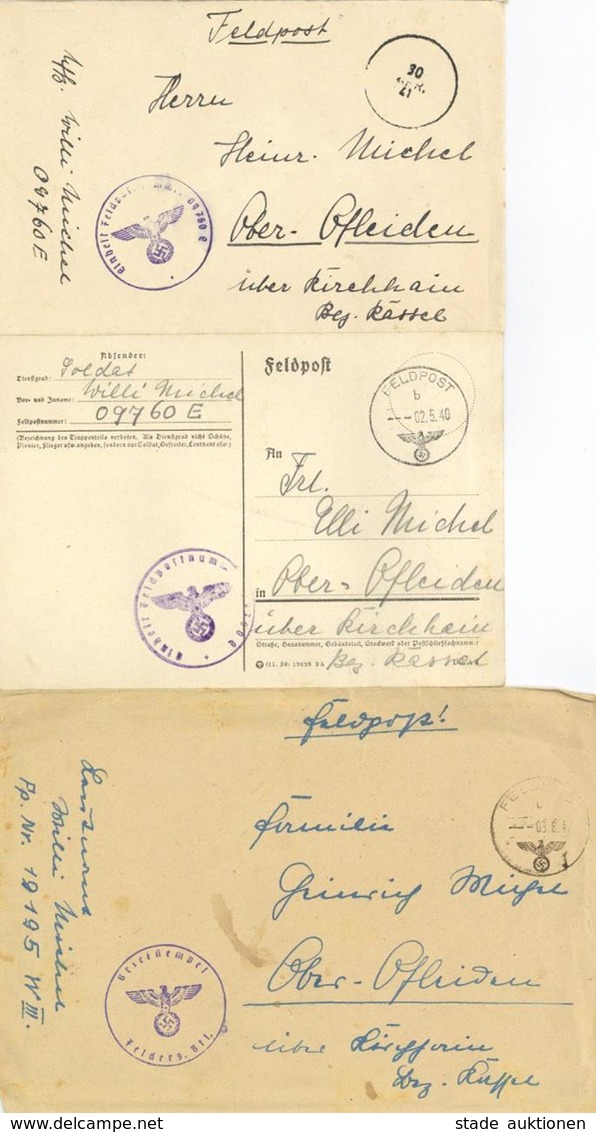 Feldpost
30
21
Herrn
Heinr. Michel
Ober-Ofleiden
über Kirchhain
Bez. Kassel
Uffz. Willi Michel
09760 E
Einheit Feldpostnummer 09760 E
Absender:
Dienstgrad: Soldat
Vor- und Zuname: Willi Michel
Feldpostnummer: 09760 E
(Bezeichnung des Truppenteils verboten. Als Dienstgrad nicht Schütze,
Pionier, Flieger usw. angeben, sondern nur Soldat, Gefreiter, Leutnant usw.)
Feldpost
FELDPOST
b
--02.5.40
An
Frl.
Elli Michel
in Ober-Ofleiden
über Kirchhain
Straße, Hausnummer, Gebäudeteil, Stockwerk oder Postschließfachnummer
Bez. Kassel
Einheit Feldpostnum
Feldpost!
Familie
Heinrich Michel
Ober-Ofleiden
über Kirchhain
Bez. Kassel
Leutnant
Willi Michel
Fp. Nr. 19195 W III.
Briefstempel
Felders. Btl.
stade auktionen